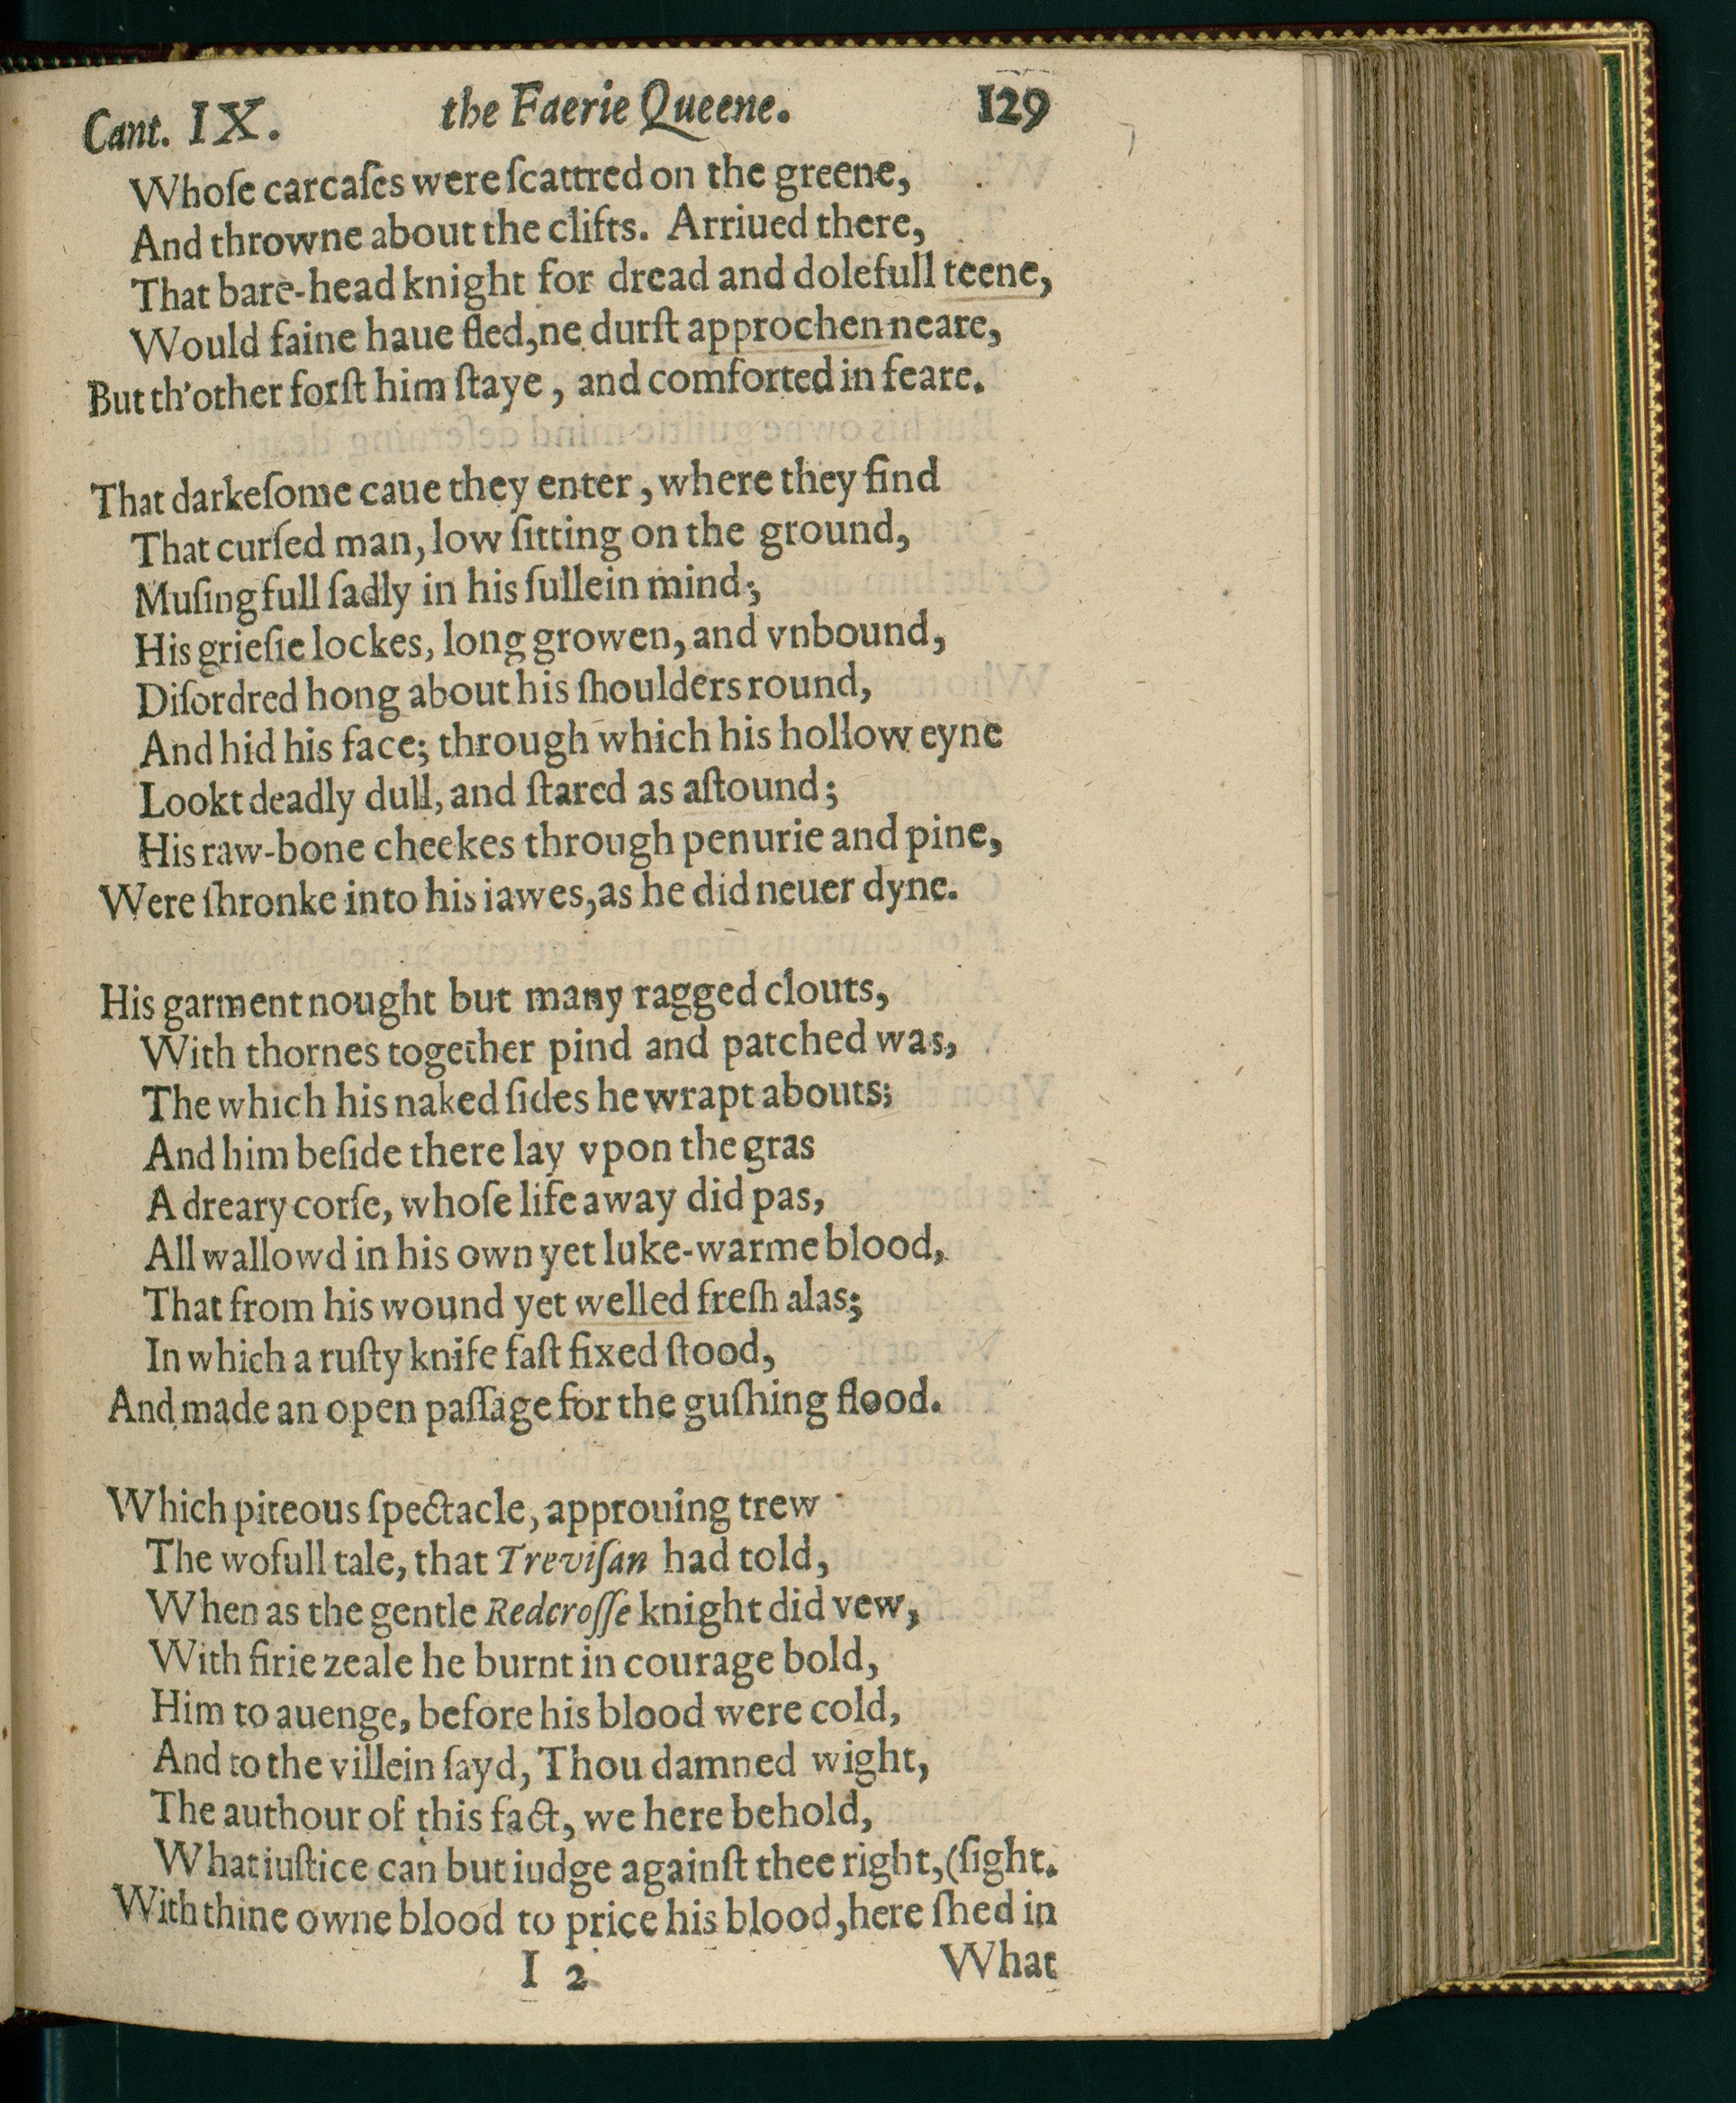 Cant. IX. the Faerie Queene. 129
Whoſe carcaſes were ſcattred on the greene,
And throwne about the clifts. Arriued there,
That bare-head knight for dread and dolefull teene,
Would faine haue fled, ne durſt approchen neare,
But th'other forſt him ſtaye, and comforted in feare.
That darkeſome caue they enter, where they find
That curſed man, low ſitting on the ground,
Muſing full ſadly in his ſullein mind;
His grieſie lockes, long growen, and vnbound,
Diſordred hong about his ſhoulders round,
And hid his face; through which his hollow eyne
Lookt deadly dull, and ſtared as aſtound;
His raw-bone cheekes through penurie and pine,
Were ſhronke into his iawes, as he did neuer dyne.
His garment nought but many ragged clouts,
With thornes together pind and patched was,
The which his naked ſides he wrapt abouts;
And him beſide there lay vpon the gras
A dreary corſe, whoſe life away did pas,
All wallowd in his own yet luke-warme blood,
That from his wound yet welled freſh alas;
In which a ruſty knife faſt fixed ſtood,
And made an open paſſage for the guſhing flood.
Which piteous ſpectacle, approuing trew
The wofull tale, that Treviſan had told,
When as the gentle Redcroſſe knight did vew,
With firie zeale he burnt in courage bold,
Him to auenge, before his blood were cold,
And to the villein ſayd, Thou damned wight,
The authour of this fact, we here behold,
What iuſtice can but iudge againſt thee right, (ſight.
With thine owne blood to price his blood, here ſhed in
I 2 What